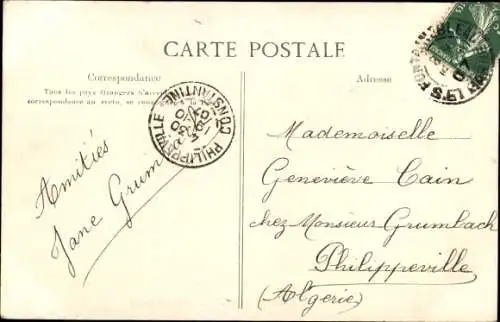 CARTE POSTALE
Correspondance
Tous les pays étrangers n'acceptent
correspondance au recto, se
Adresse
PHILIPPEVILLE CONSTANTINE
Amitiés
Jane Grumb
Mademoiselle
Geneviève Cain
chez Monsieur Grumbach
Philippeville
(Algérie)